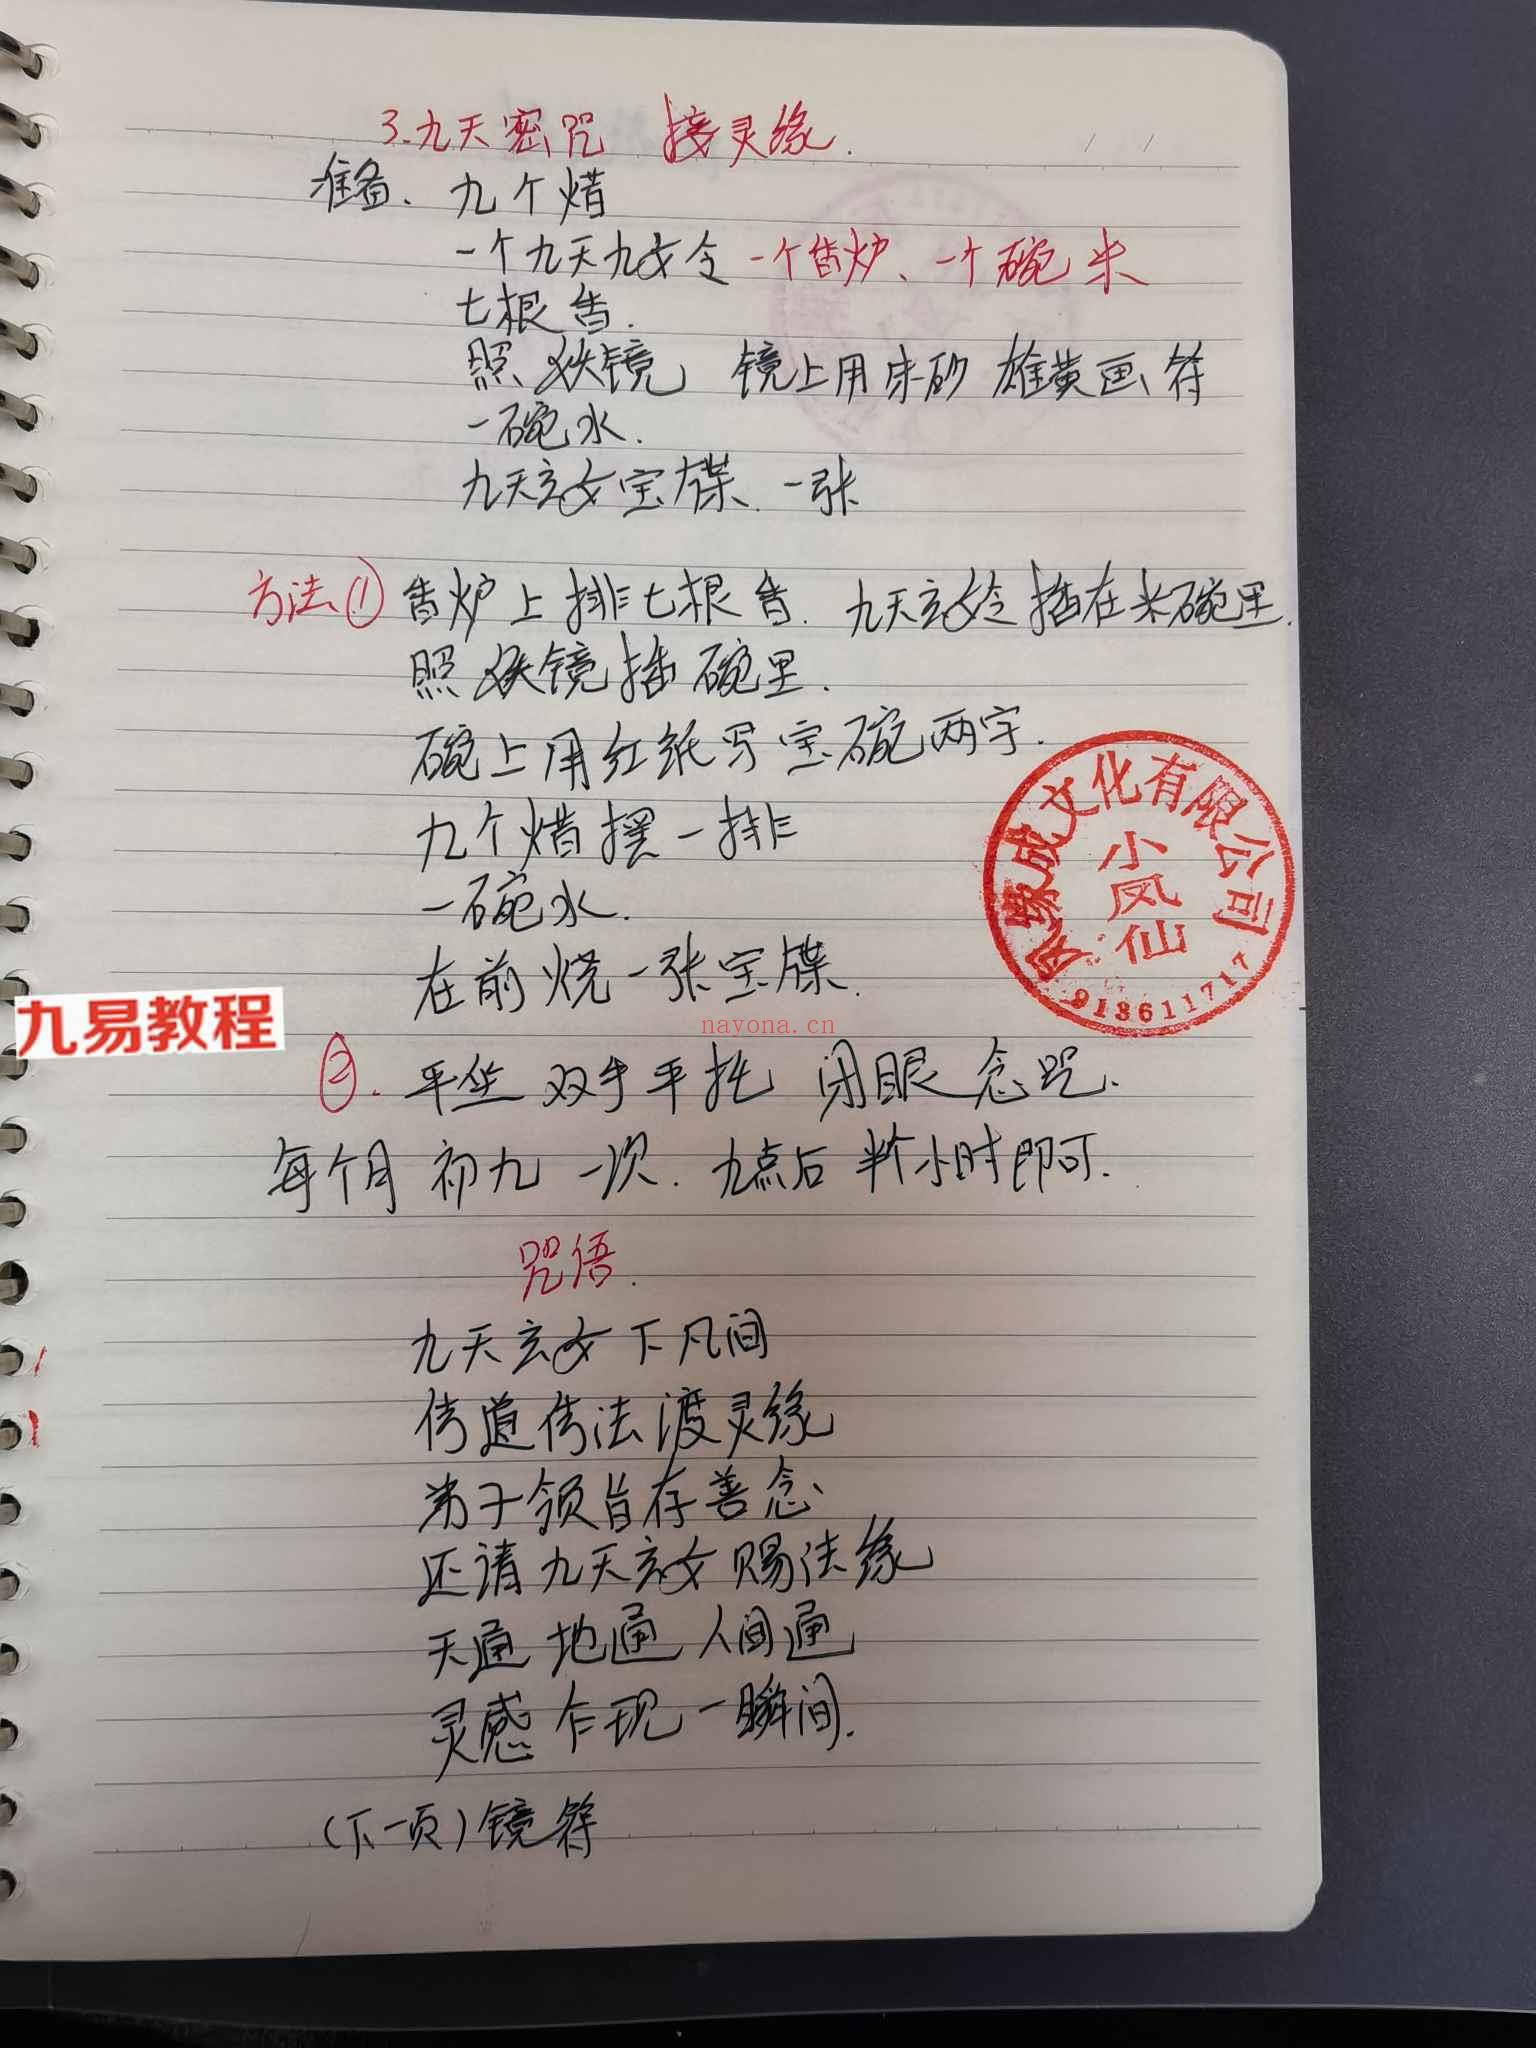 3.九天密咒 接灵缘.
准备、九个烛
一个九天九女令 一个香炉、一个碗米
七根香.
照妖镜 镜上用朱砂雄黄画符
一碗水.
九天玄女宝牒.一张
方法① 香炉上排七根香.九天玄女令插在米碗里.
照妖镜插碗里.
碗上用红纸写宝碗两字.
九个烛摆一排
一碗水.
在前烧一张宝牒.
②.平坐 双手平托 闭眼念咒.
每个月初九一次.九点后 半个小时即可.
咒语.
九天玄女下凡间
传道传法渡灵缘
弟子领旨存善念
还请九天玄女赐法缘
天通地通人间通
灵感乍现一瞬间.
(下一页)镜符
缘成文化有限公司
小凤仙
913611717
九易教程
nayona.cn